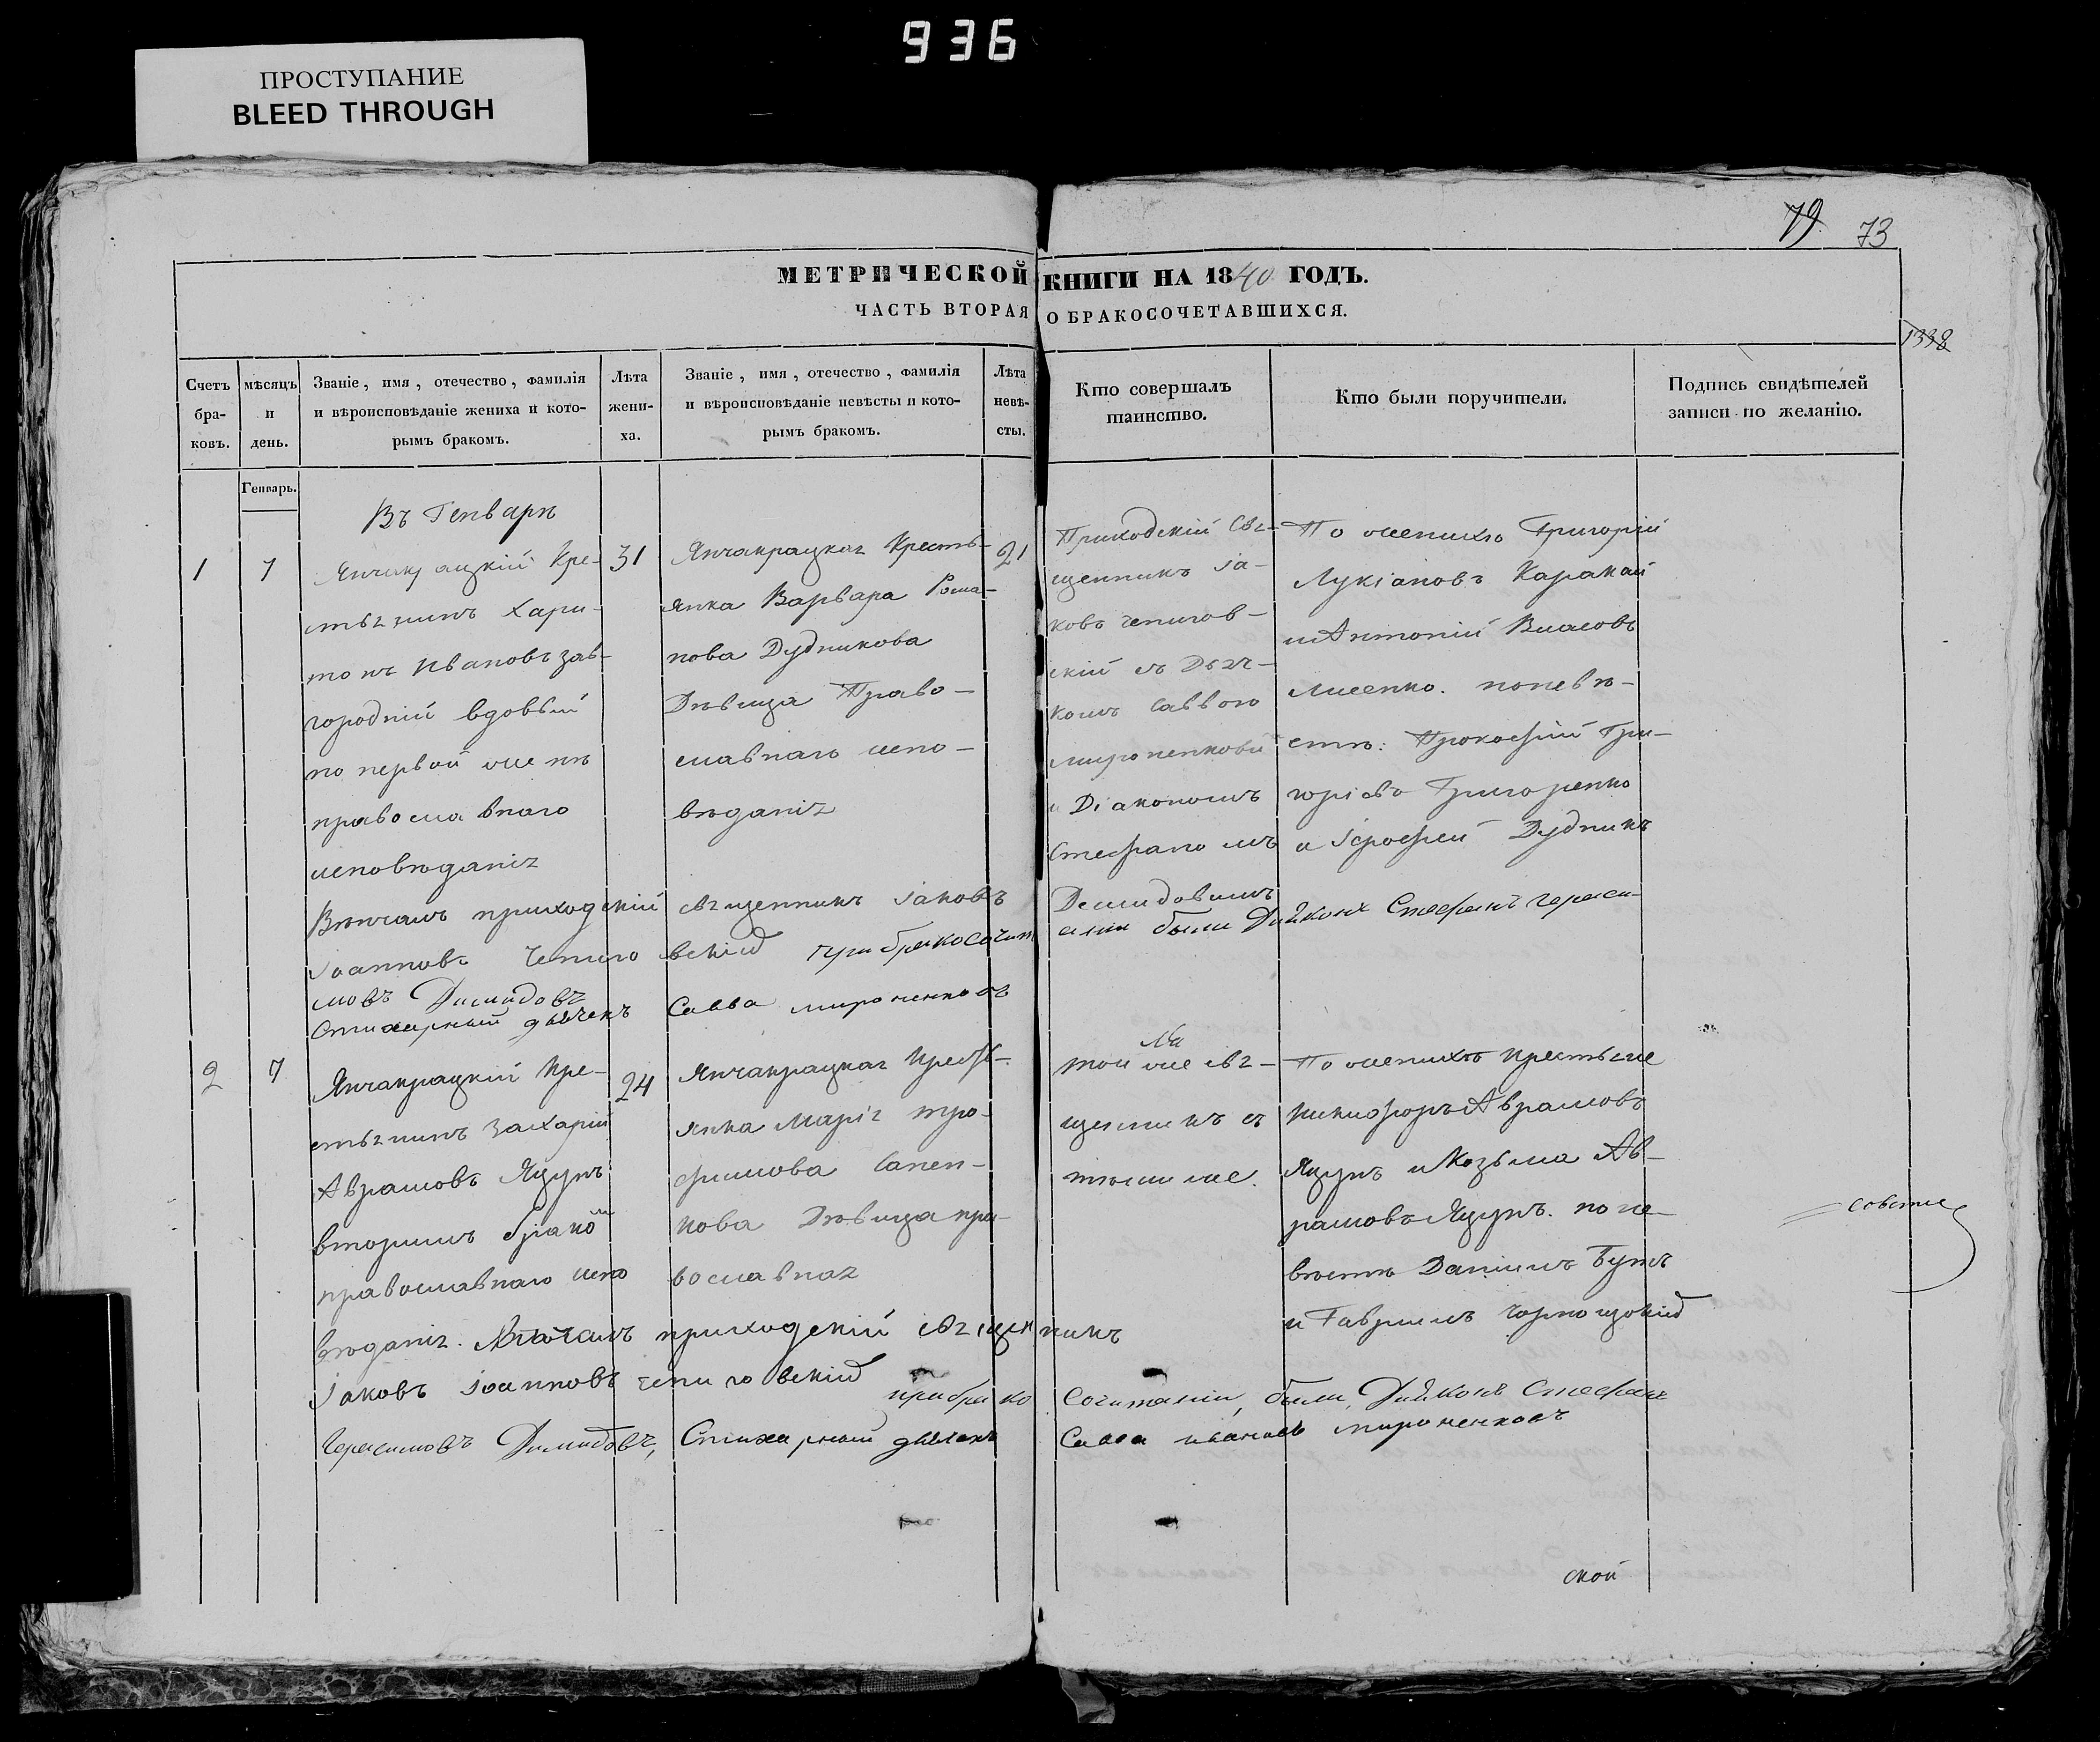 936
ПРОСТУПАНИЕ
BLEED THROUGH
79 73
МЕТРИЧЕСКОЙ КНИГИ НА 1840 ГОДЪ.
ЧАСТЬ ВТОРАЯ О БРАКОСОЧЕТАВШИХСЯ.
1338
Счетъ бра-ковъ.
мѣсяцъ и день.
Званіе, имя, отечество, фамилія
и вѣроисповѣданіе жениха и кото-
рымъ бракомъ.
Лѣта жени-ха.
Званіе, имя, отечество, фамилія
и вѣроисповѣданіе невѣсты и кото-
рымъ бракомъ.
Лѣта невѣ-сты.
Кто совершалъ
таинство.
Кто были поручители.
Подпись свидѣтелей
записи по желанію.
Генварь.
Въ Генварѣ
1
7
Янчакрацкій Кре-
стьянинъ Хари-
тонъ Ивановъ зав-
городній вдовый
по первой женѣ
православнаго
исповѣданія
31
Янчакрацкая Кресть-
янка Варвара Рома-
нова Дудникова
Дѣвица Право-
славнаго испо-
вѣданія
21
Приходскій Свя-
щенникъ Іа-
ковъ Чепигов-
скій съ Дьяч-
комъ Саввою
Мироненковы
и Діакономъ
Стефаномъ
Демидовымъ
По женихѣ Григорій
Лукіановъ Каракай
и Антоній Власовъ
Лисенко. по невѣ-
стѣ: Прокофій Гри-
горіевъ Григоренко
и Іерофей Дудникъ
Вѣнчалъ приходскій священникъ Іаковъ
Іоанновъ Чепиговскій при бракосочит
аніи были Дияконъ Стефанъ Гераси-
мовъ Димидовъ
Стихарный дьячекъ Савва Мироненковъ
2
7
Янчакрацкій Кре-
стьянинъ Захарій
Аврамовъ Яцунъ
вторымъ бракомъ
православнаго испо
вѣданія.
24
Янчакрацкая Кресть-
янка Марія Тро-
фимова Сапен-
кова Дѣвица пра-
вославная
той же свя-
щенникъ съ
тѣми же.
По женихѣ крестьяне
Никифоръ Аврамовъ
Яцунъ и Козьма Ав-
рамовъ Яцунъ. по не-
вѣстѣ Даніилъ Бутъ
и Гавріилъ
Вѣнчалъ приходскій священникъ
Іаковъ Іоанновъ Чепиговскій при брако сочитаніи, были, Дияконъ Стефанъ
Герасимовъ Димидовъ, Стихарный дьячекъ Савва Ивановъ Мироненковъ
ской